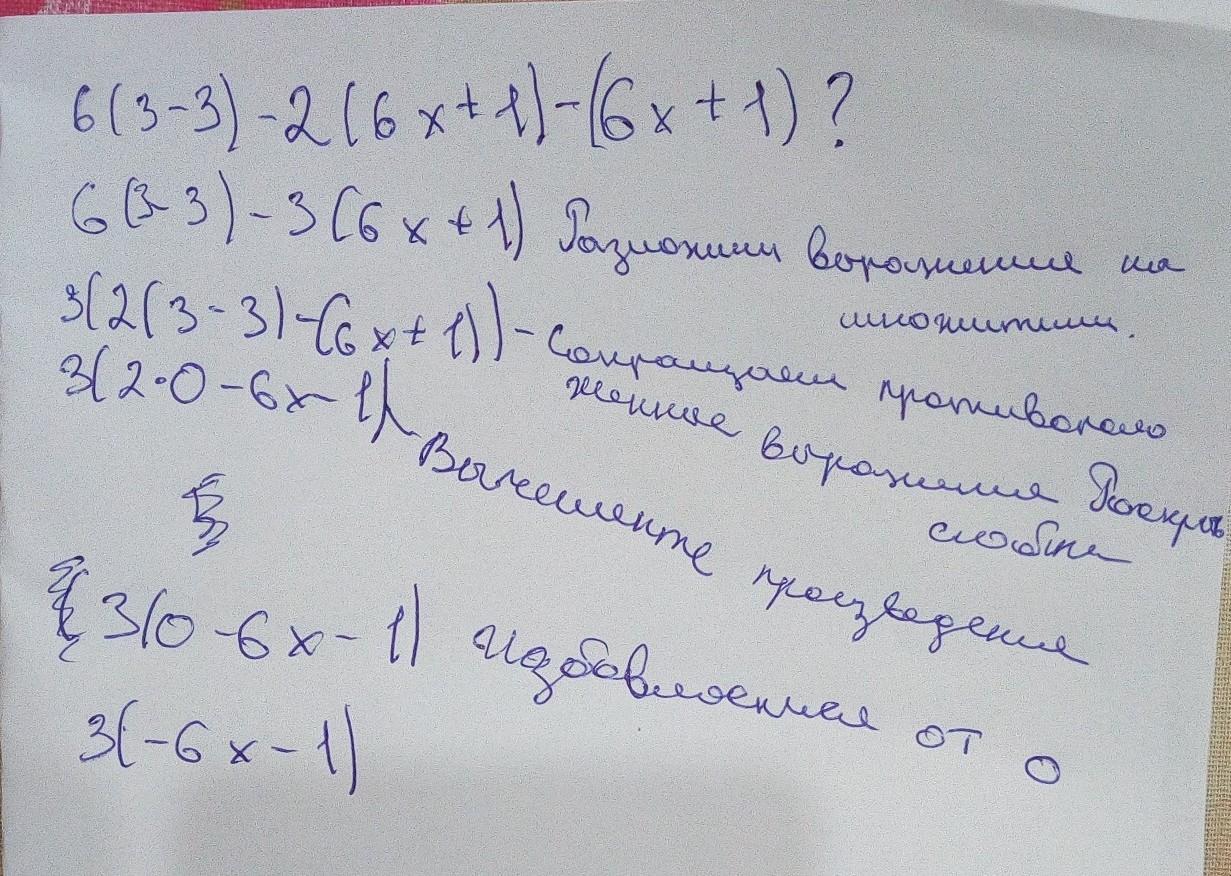 6(3-3)-2(6x+1)-(6x+1)?
6(3-3)-3(6x+1) Разложим выражение на
множители.
3(2(3-3)-(6x+1))-Сокращаем противополо
3(2·0-6x-1) женное выражения Раскрыв
скобки
Вычислите произведения
3(0-6x-1) избавляемся от 0
3(-6x-1)